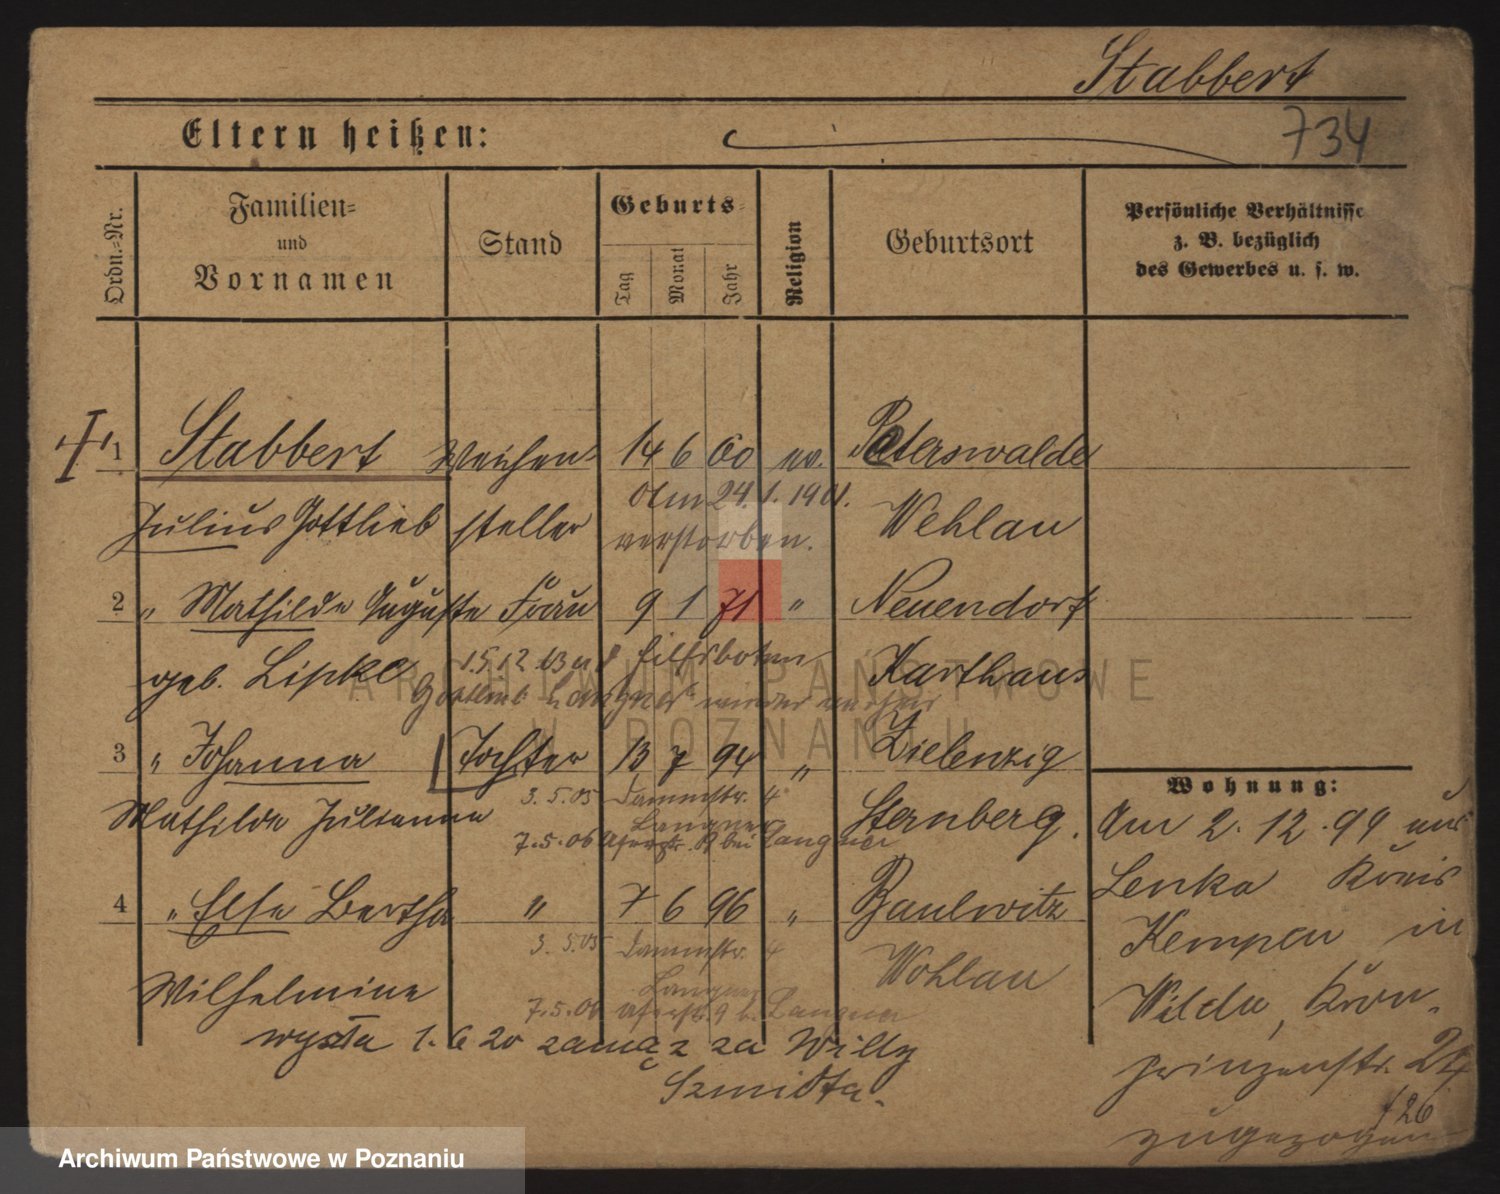 Stabbert
734
Eltern heißen:
Ordn.=Nr.
Familien=
und
Vornamen
Stand
Geburts=
Tag
Monat
Jahr
Religion
Geburtsort
Persönliche Verhältnisse
z. B. bezüglich
des Gewerbes u. s. w.
1 Stabbert Weichen- 14 6 60 ev. Peterswalde
Am 24. 1. 1901.
Julius Gottlieb steller verstorben. Wehlau
2 " Mathilde Auguste Frau 9 1 71 " Neuendorf
geb. Lipke 15.12.03 Hilfsboten Karthaus
Gottlieb Langner wieder
3 " Johanna Tochter 13 7 94 " Zielenzig
3.5.05 Dammstr. 4
Mathilde Julianna Langner Sternberg.
7.5.06 bei Langner
4 " Else Bertha " 7 6 96 " Baulwitz
3.5.05 Dammstr. 4
Wilhelmine Langner Wohlau
7.5.06 9 b. Langner
wyszła 1. 6 20 zamąż za Willy
Szmidta.
Wohnung:
Am 2. 12. 99 aus
Lenka Kreis
Kempen in
Wilda, Kron-
prinzenstr. 24
/26
zugezogen
ARCHIWUM PAŃSTWOWE
W POZNANIU
Archiwum Państwowe w Poznaniu